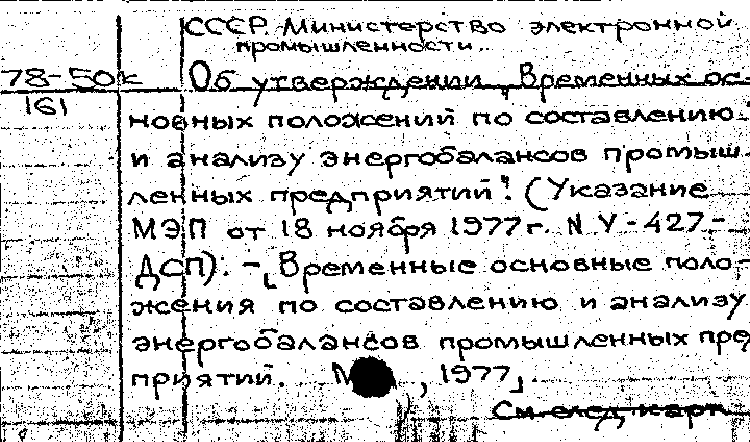 СССР. Министерство электронной
промышленности.
78-50к
161
Об утверждении „Временных ос-
новных положений по составлению
и анализу энергобалансов промыш-
ленных предприятий". (Указание
МЭП от 18 ноября 1977 г. N У-427-
ДСП). - [Временные основные поло-
жения по составлению и анализу
энергобалансов промышленных пред
приятий. М , 1977].
См. след. карт.